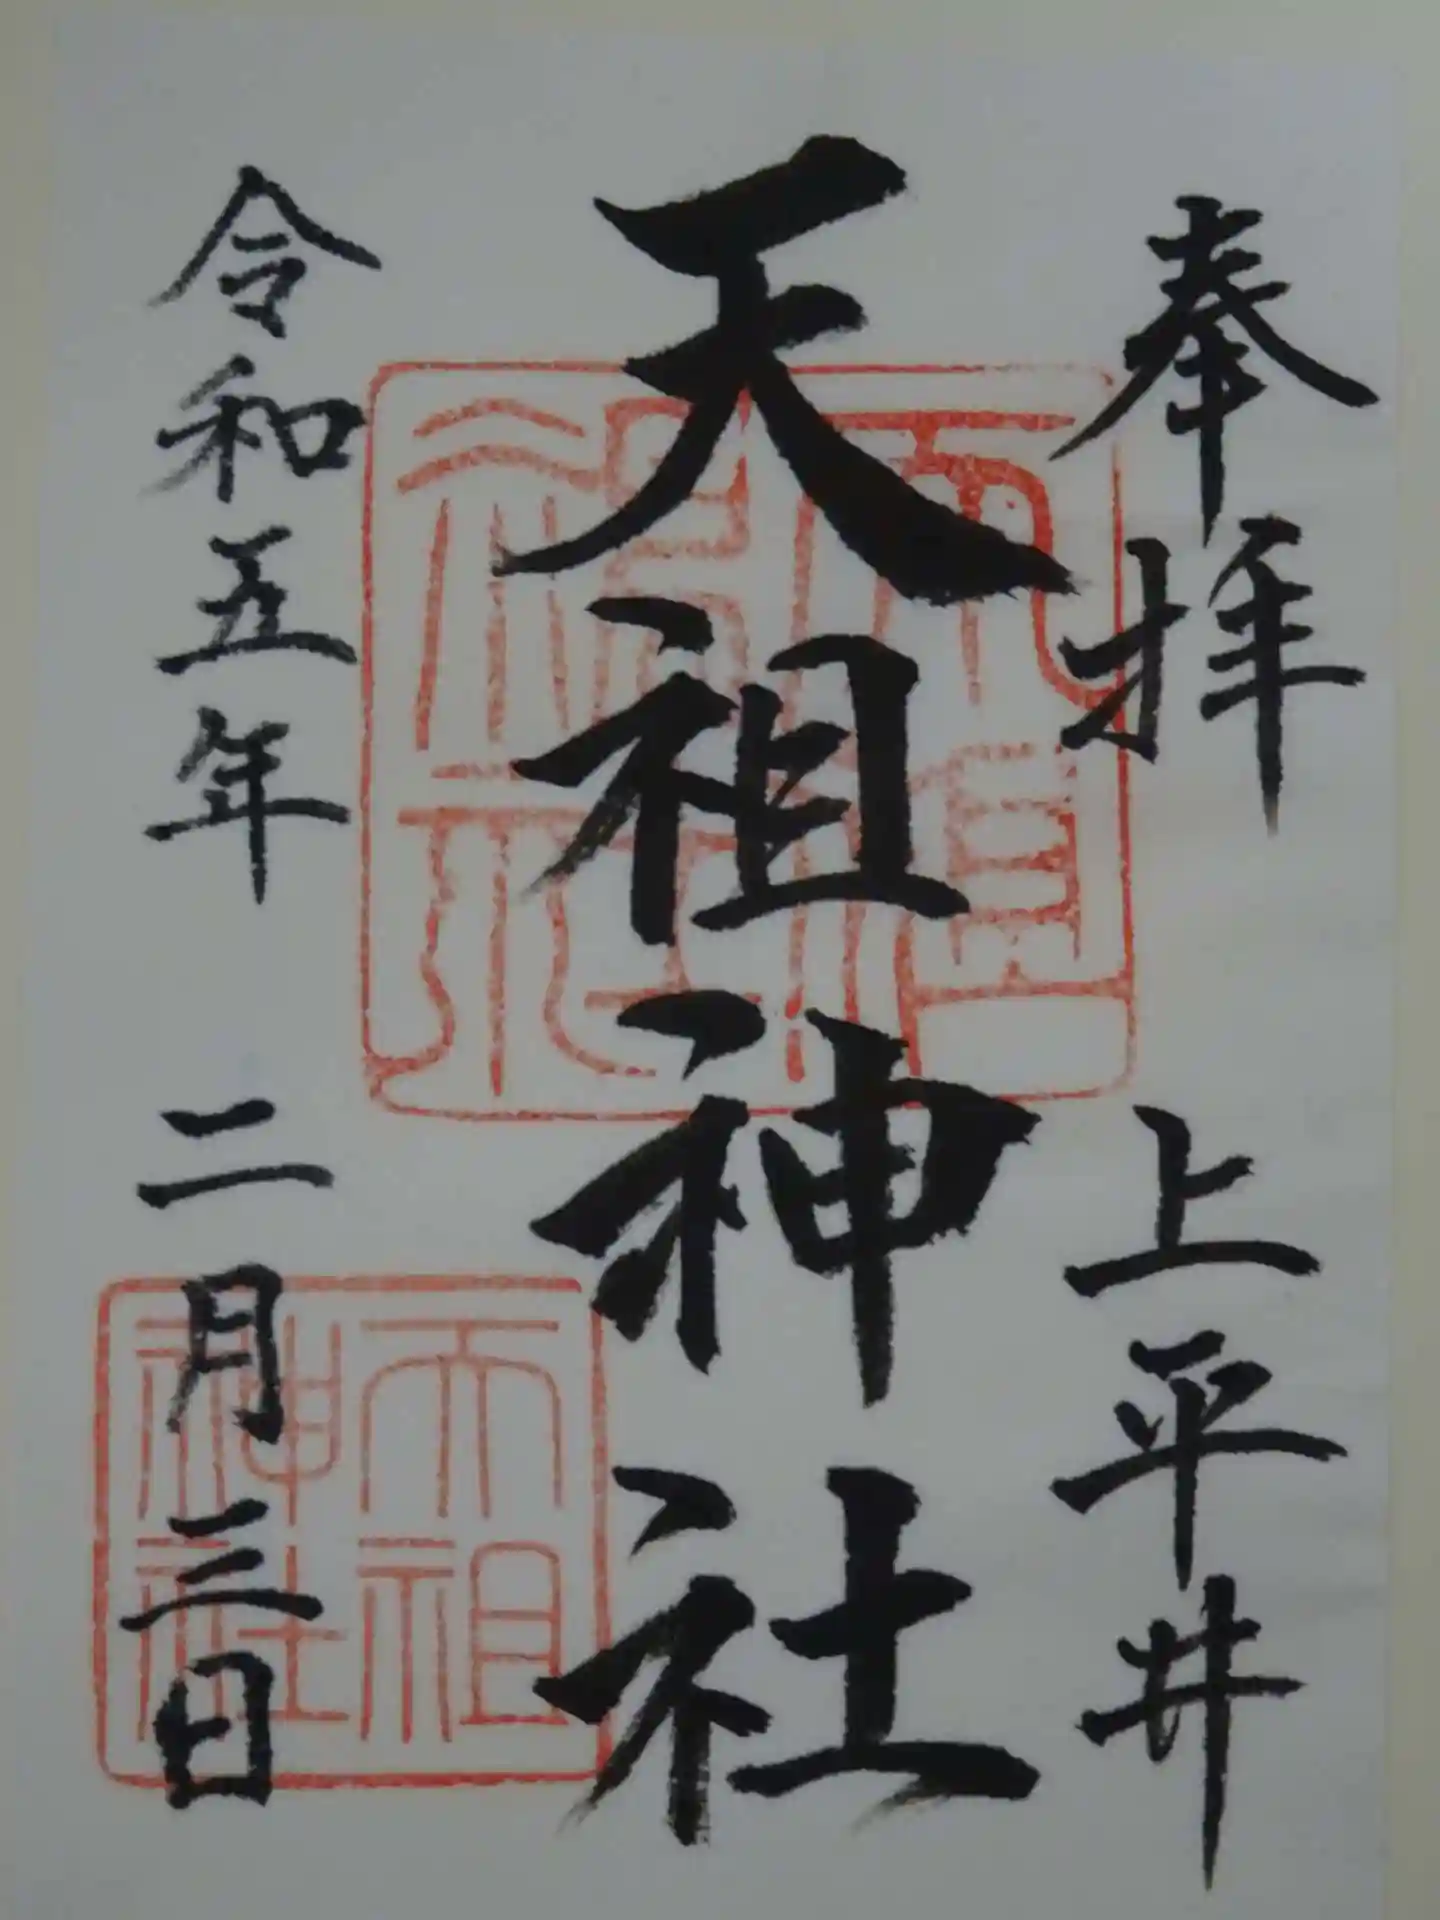 奉拝 上平井
天祖神社
令和五年 二月三日
天祖
神社